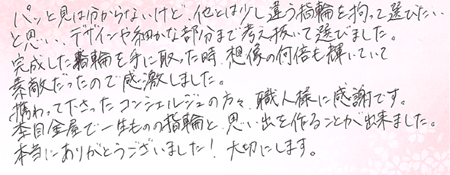 パッと見は分からないけど、他とは少し違う指輪を拘って選びたい
と思い、デザインや細かな部分まで考え抜いて選びました。
完成した指輪を手に取った時、想像の何倍も輝いていて
素敵だったので感激しました。
携わって下さったコンシェルジュの方々、職人様に感謝です。
杢目金屋で一生ものの指輪と、思い出を作ることが出来ました。
本当にありがとうございました！大切にします。